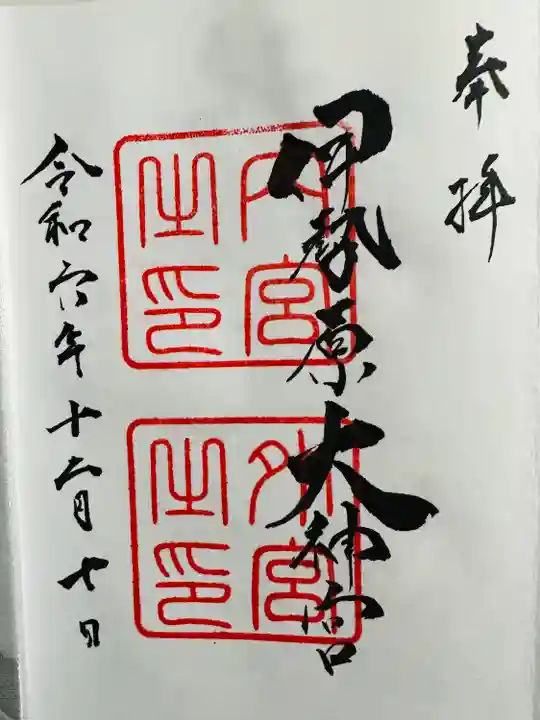 奉拝
伊勢原大神宮
内宮之印
外宮之印
令和六年十二月七日